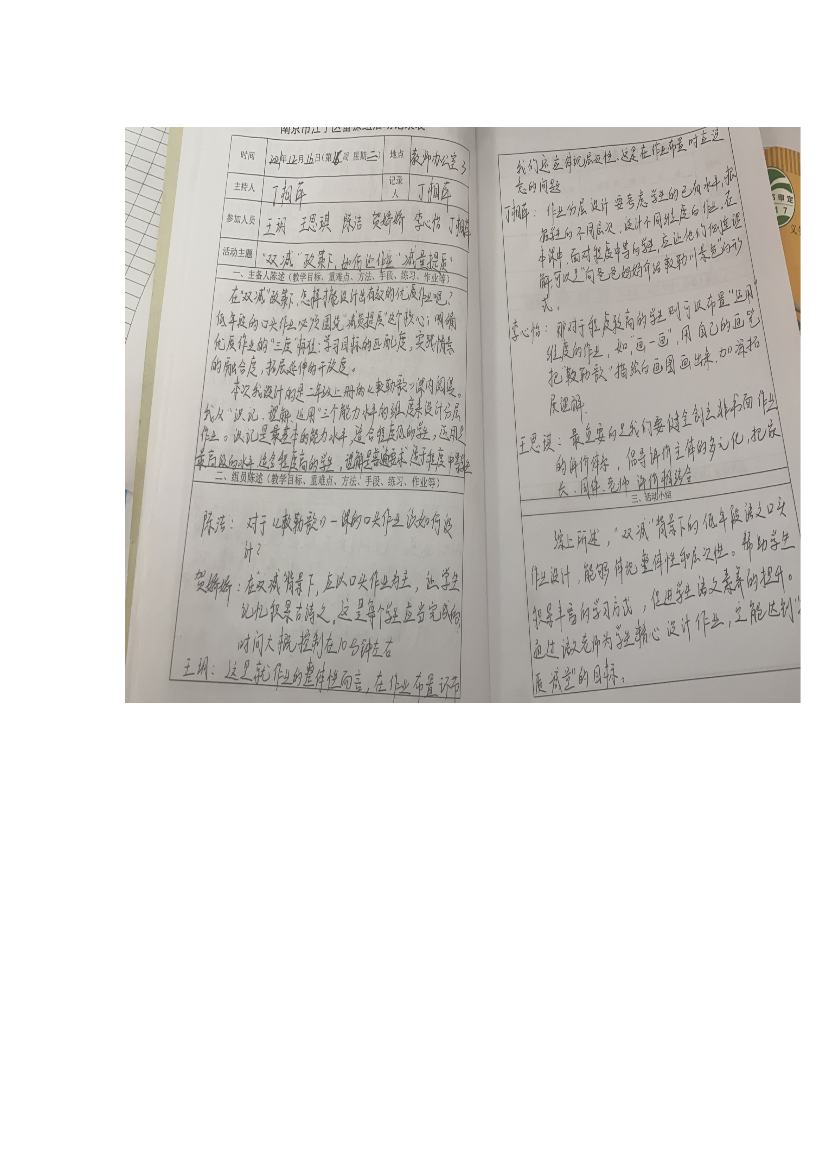 时间
2021年12月16日(第 周 星期二)
地点
教师办公室3
主持人
丁相萍
记录人
丁相萍
参加人员
王玥 王思琪 陈洁 贺娇娇 李心怡 丁相萍
活动主题
"双减"政策下,如何让作业"减量提质"
一、主备人陈述(教学目标、重难点、方法、手段、练习、作业等)
在"双减"政策下,怎样才能设计出有效的优质作业呢?
低年段的口头作业必须围绕"减负提质"这个核心;明确
优质作业的"三度"特征:学习目标的匹配度,实践情景
的融合度,拓展延伸的开放度。
本次我设计的是二年级上册的《敕勒歌》课内阅读。
我从"识记、理解、运用"三个能力水平的维度来设计分层
作业。识记是最基本的能力水平,适合程度低的学生,运用是
最高级的水平适合程度高的学生,理解是普遍要求属于程度中等学生
二、组员陈述(教学目标、重难点、方法、手段、练习、作业等)
陈洁:对于《敕勒歌》一课的口头作业该如何设
计?
贺娇娇:在双减背景下,应以口头作业为主,让学生
记忆积累古诗文,这是每个学生应当完成的,
时间大概控制在10分钟左右
王玥:这是就作业的整体性而言,在作业布置环节
我们还应体现层次性,这是在作业布置时应注
意的问题
丁相萍:作业分层设计要考虑学生的已有水平,根
据学生的不同层次,设计不同维度的作业。在
本课中,面对程度中等的学生,应让他们创造理
解,可以是"向爸爸妈妈介绍敕勒川景色"的形
式。
李心怡:那对于程度较高的学生则可以布置"运用"
维度的作业,如"画一画",用自己的画笔
把"敕勒歌"描绘的画图画出来,加深拓
展理解.
王思琪:最重要的是我们要健全创立非书面作业
的评价体系,倡导评价主体的多元化,把家
长、同伴、老师评价相结合
三、活动小结
综上所述,"双减"背景下的低年段语文口头
作业设计,能够体现整体性和层次性。帮助学生
积累丰富的学习方式,促进学生语文素养的提升。
通过语文老师为学生精心设计作业,定能达到"
质减量"的目标。